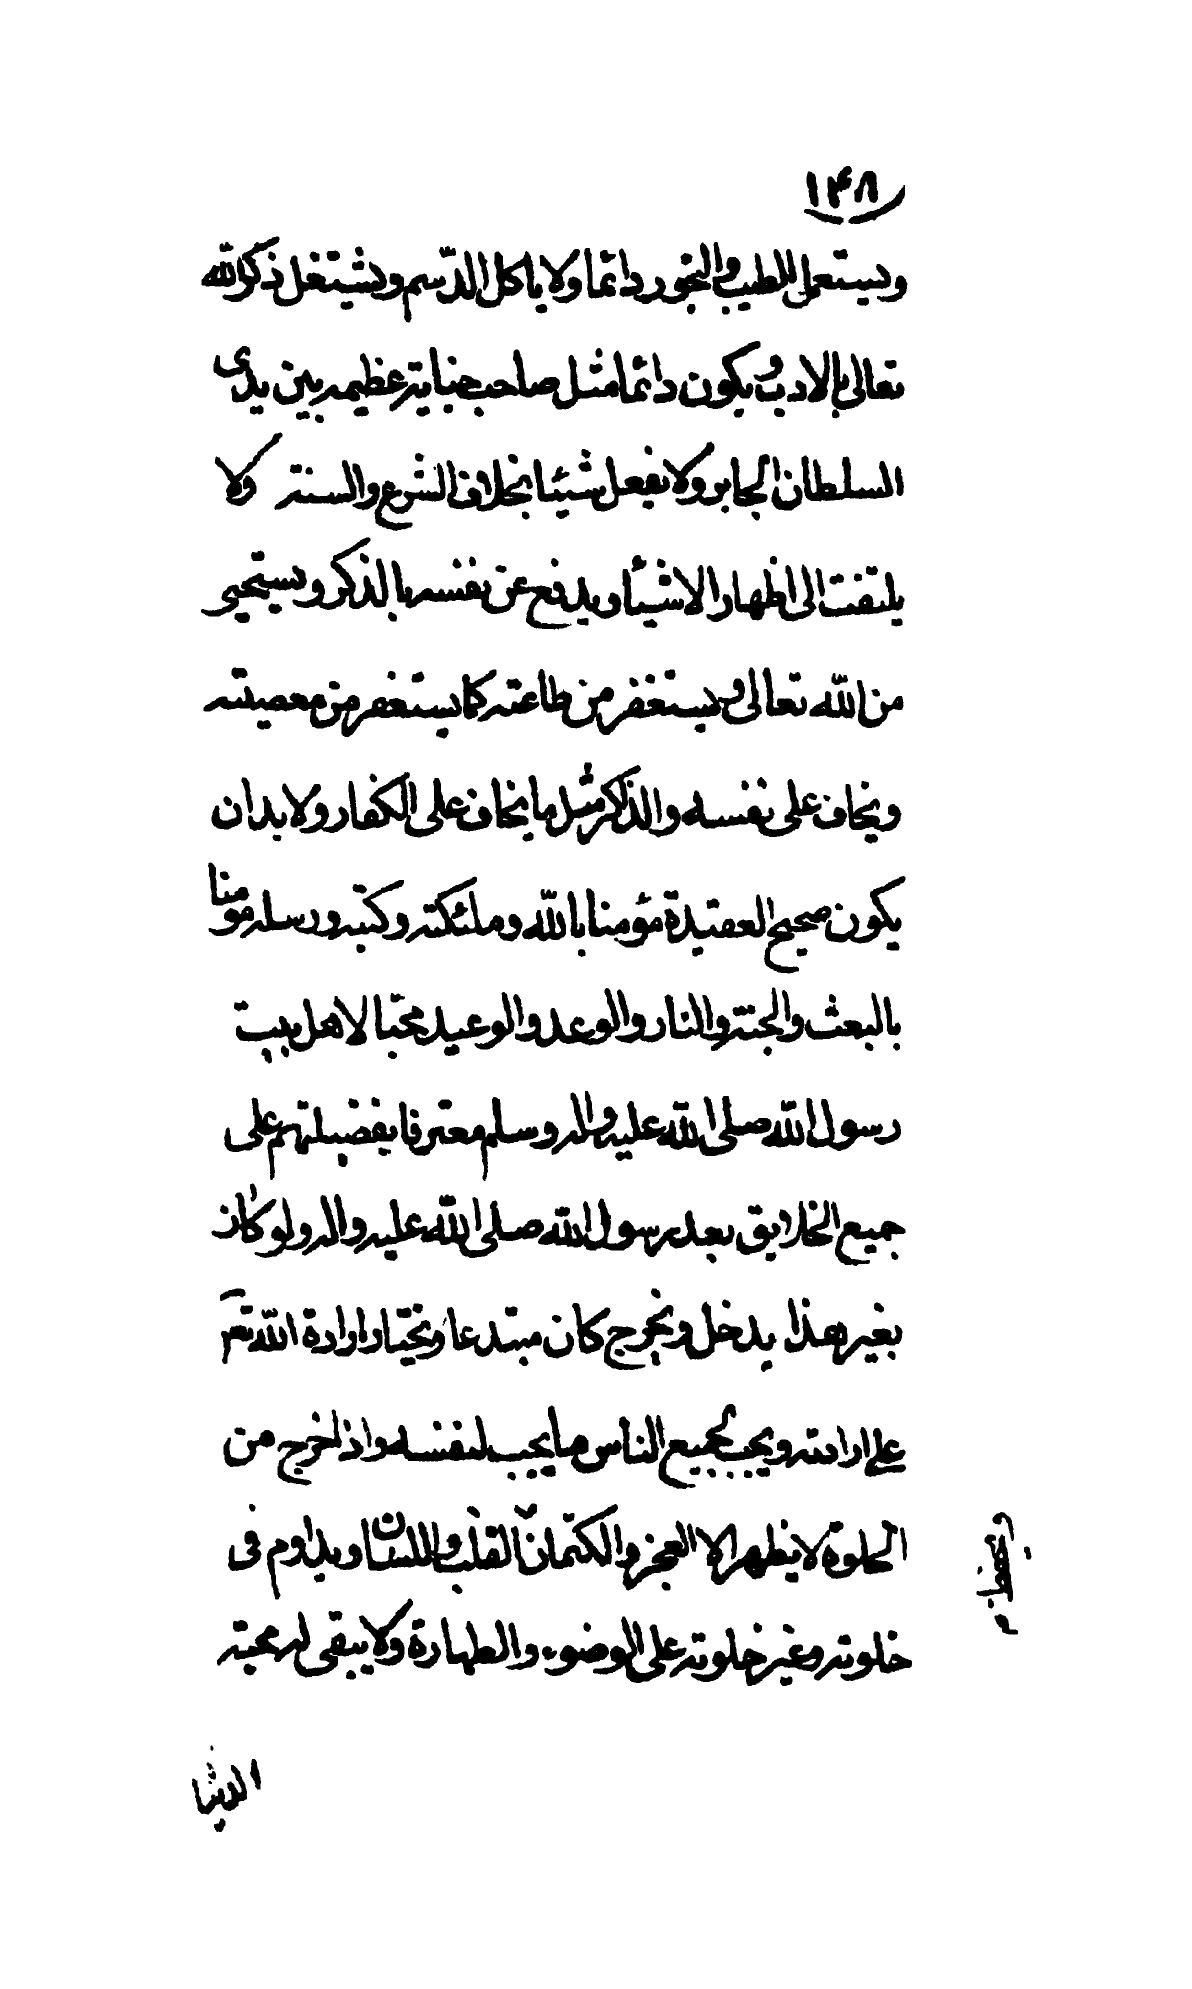 ١٤٨
ويستعمل الطيب والبخور دائما ولا ياكل الدسم ويشتغل ذكر الله
تعالى بالادب ويكون دائما مثل صاحب جناية عظيمه بين يدى
السلطان الجابر ولا يفعل شيئا بخلاف الشرع والسنة ولا
يلتفت الى اظهار الاشئا ويدفع عن نفسه بالذكر ويستحيى
من الله تعالى ويستغفر من طاعته كما يستغفر من معصيته
ويخاف على نفسه والذاكر مثل ما يخاف على الكفار ولا بد ان
يكون صحيح العقيدة مؤمنا بالله وملئكته وكتبه ورسله مومنا
بالبعث والجنة والنار والوعد والوعيد محبّا لاهل بيت
رسول الله صلى الله عليه واله وسلم معترفا بفضيلتهم على
جميع الخلايق بعد رسول الله صلى الله عليه واله ولو كان
بغير هذا يدخل ويخرج كان مبتدعا ويختار ارادة الله تعم
على ارادته ويحب لجميع الناس ما يحب لنفسه واذا خرج من
الخلوة لا يظهر الا العجز والكتمان القلب واللسان ويداوم فى
خلوته وغير خلوته على الوضوء والطهارة ولا يبقى له محبة
الدنيا